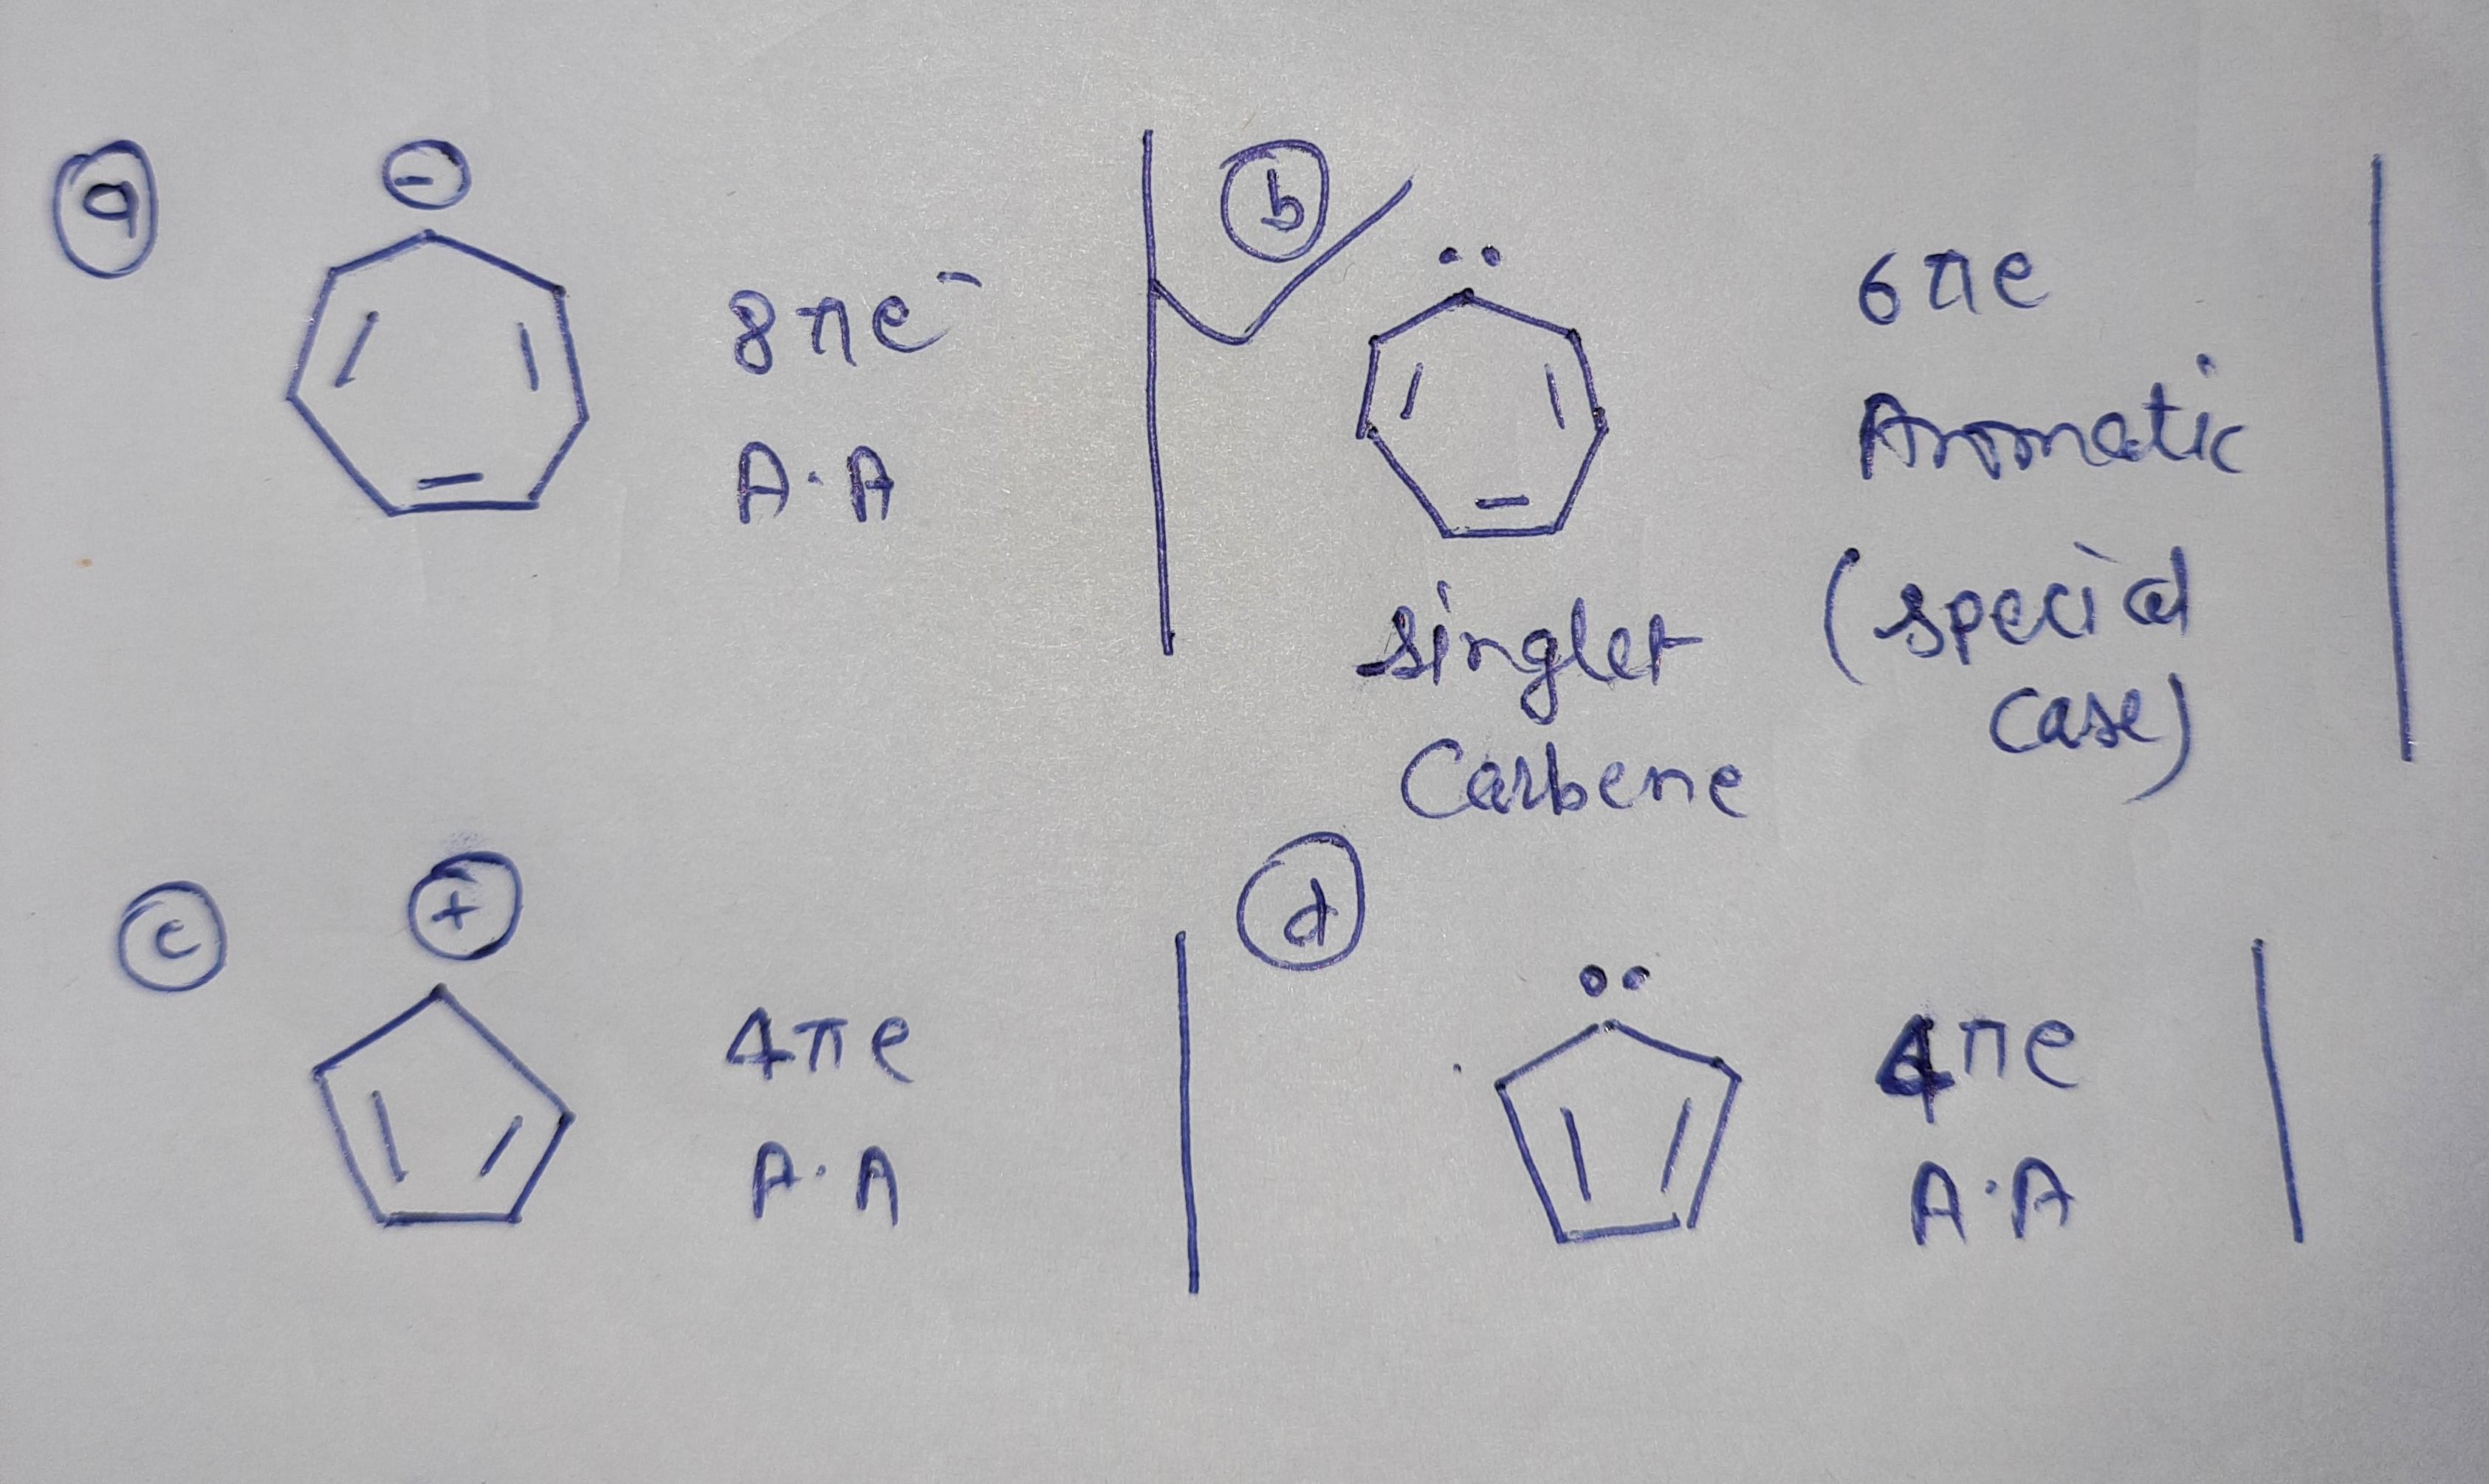 a
⊖
8πe⁻
A·A
b
6πe
Aromatic
(special
case)
singlet
Carbene
c
⊕
4πe
A·A
d
4πe
A·A